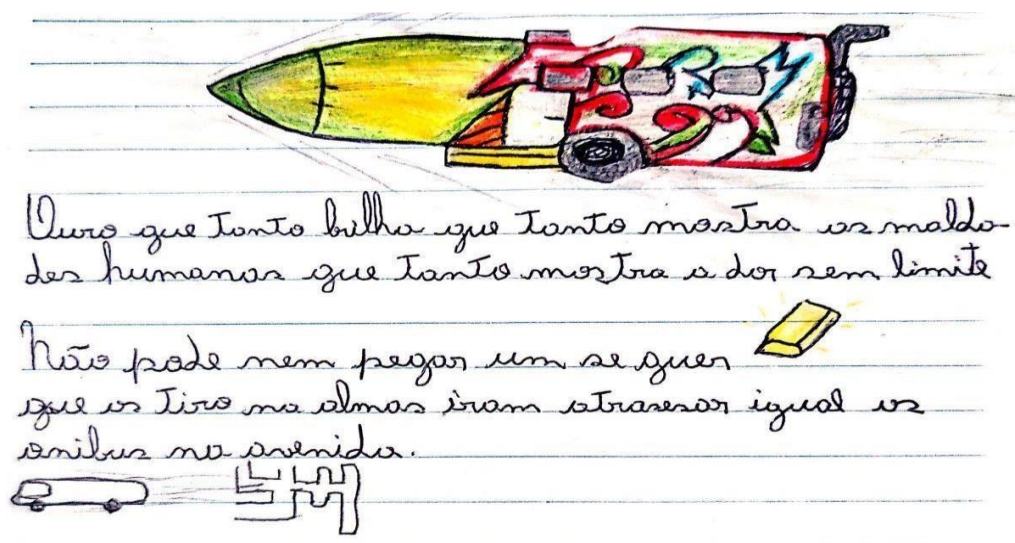 Ouro que tanto brilha que tanto mostra as malda-
des humanas que tanto mostra a dor sem limite
Não pode nem pegar um se quer
que os tiro na almas iram atrasesar igual os
onibus na avenida.